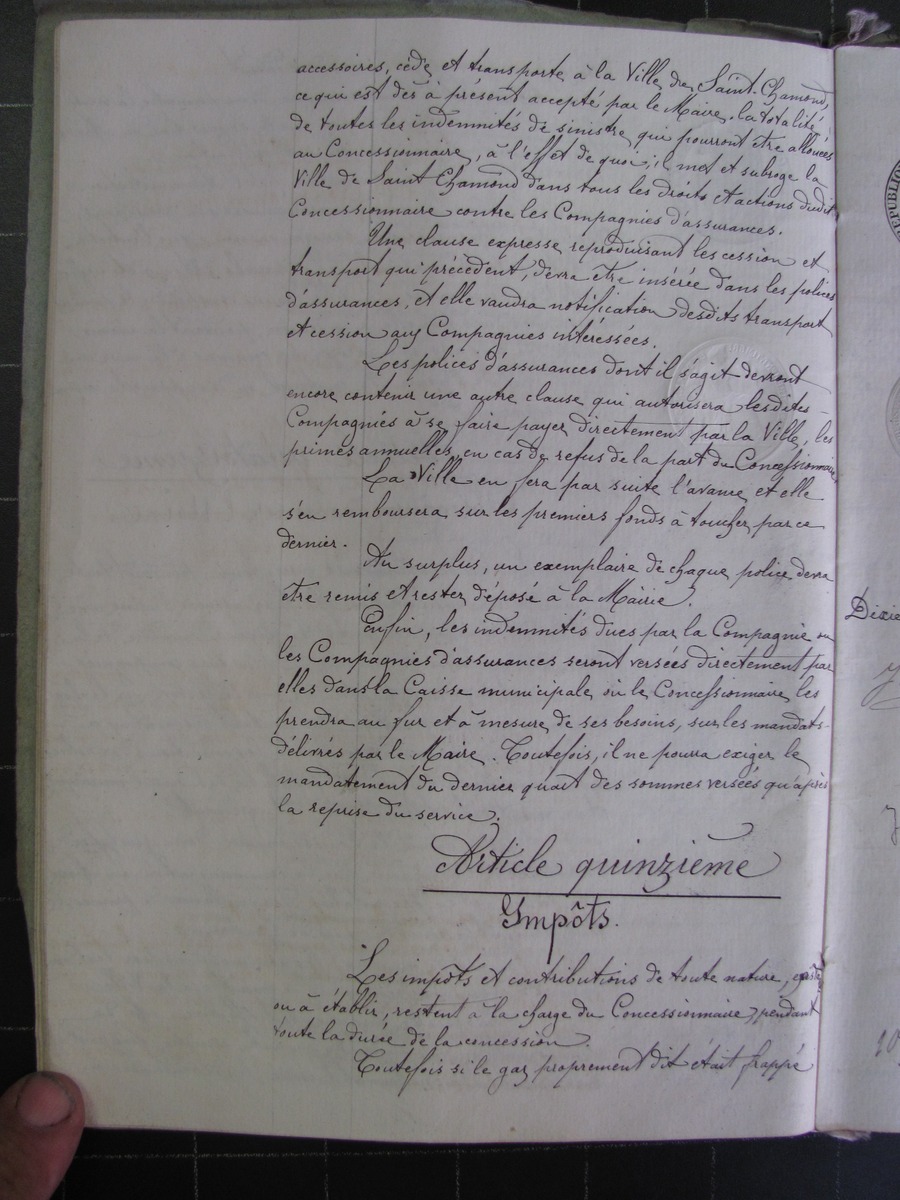 accessoires, cède et transporte à la Ville de Saint-Chamond,
ce qui est dès à présent accepté par le Maire, la totalité
de toutes les indemnités de sinistre qui pourront être allouées
au Concessionnaire, à l'effet de quoi, il met et subroge la
Ville de Saint Chamond dans tous les droits et actions dudit
Concessionnaire contre les Compagnies d'assurances.
Une clause expresse reproduisant les cession et
transport qui précèdent, devra être insérée dans les polices
d'assurances, et elle vaudra notification desdits transport
et cession aux Compagnies intéressées.
Les polices d'assurances dont il s'agit devront
encore contenir une autre clause qui autorisera lesdites
Compagnies à se faire payer directement par la Ville, les
primes annuelles, en cas de refus de la part du Concessionnaire
La Ville en fera par suite l'avance et elle
s'en remboursera sur les premiers fonds à toucher par ce
dernier.
Au surplus, un exemplaire de chaque police devra
être remis et rester déposé à la Mairie.
Enfin, les indemnités dues par la Compagnie ou
les Compagnies d'assurances seront versées directement par
elles dans la Caisse municipale où le Concessionnaire les
prendra au fur et à mesure de ses besoins, sur les mandats
délivrés par le Maire. Toutefois, il ne pourra exiger le
mandatement du dernier quart des sommes versées qu'après
la reprise du service.
Article quinzième
Impôts.
Les impôts et contributions de toute nature,
ou à établir, restent à la charge du Concessionnaire, pendant
toute la durée de la concession.
Toutefois si le gaz proprement dit était frappé
REPUBLIQ
Dixie
10